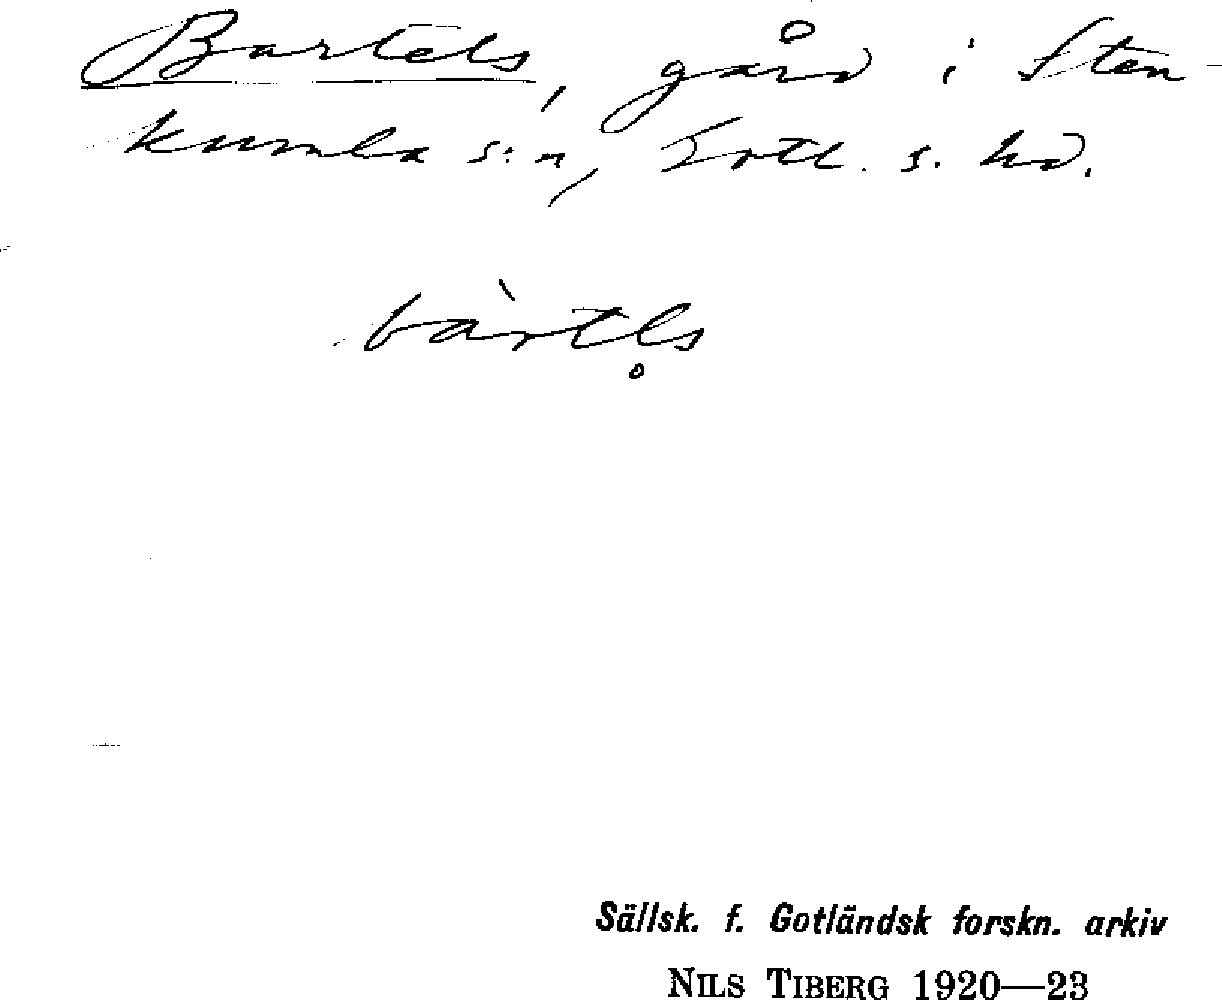 Bartels, gård i Sten-
kumla s:n, Gotl. s. hd.
bàrtl̥s
Sällsk. f. Gotländsk forskn. arkiv
NILS TIBERG 1920—23